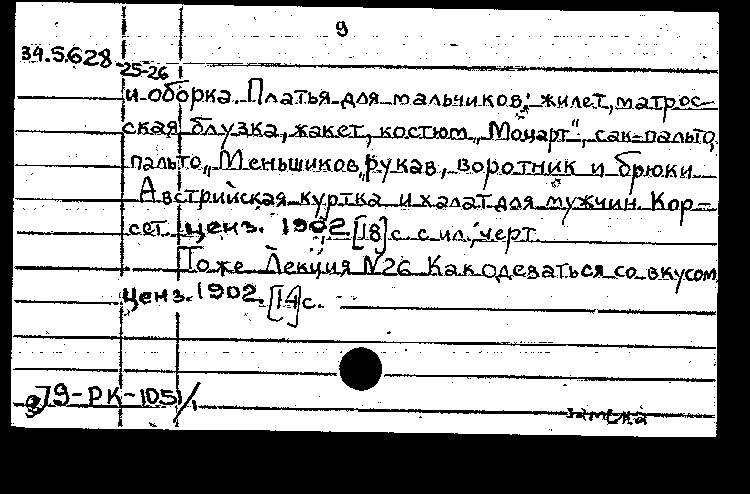 9
34.5.628
25-26
и оборка. Платья для мальчиков: жилет, матрос-
ская блузка, жакет, костюм „Моцарт", сак-пальто,
пальто „Меньшиков", рукав, воротник и брюки
Австрийская куртка и халат для мужчин. Кор-
сет ценз. 1902 [18] с. с ил.; черт.
То же Лекция N26 Как одеваться со вкусом
ценз. 1902. [14] с.
79-РК-1051/1